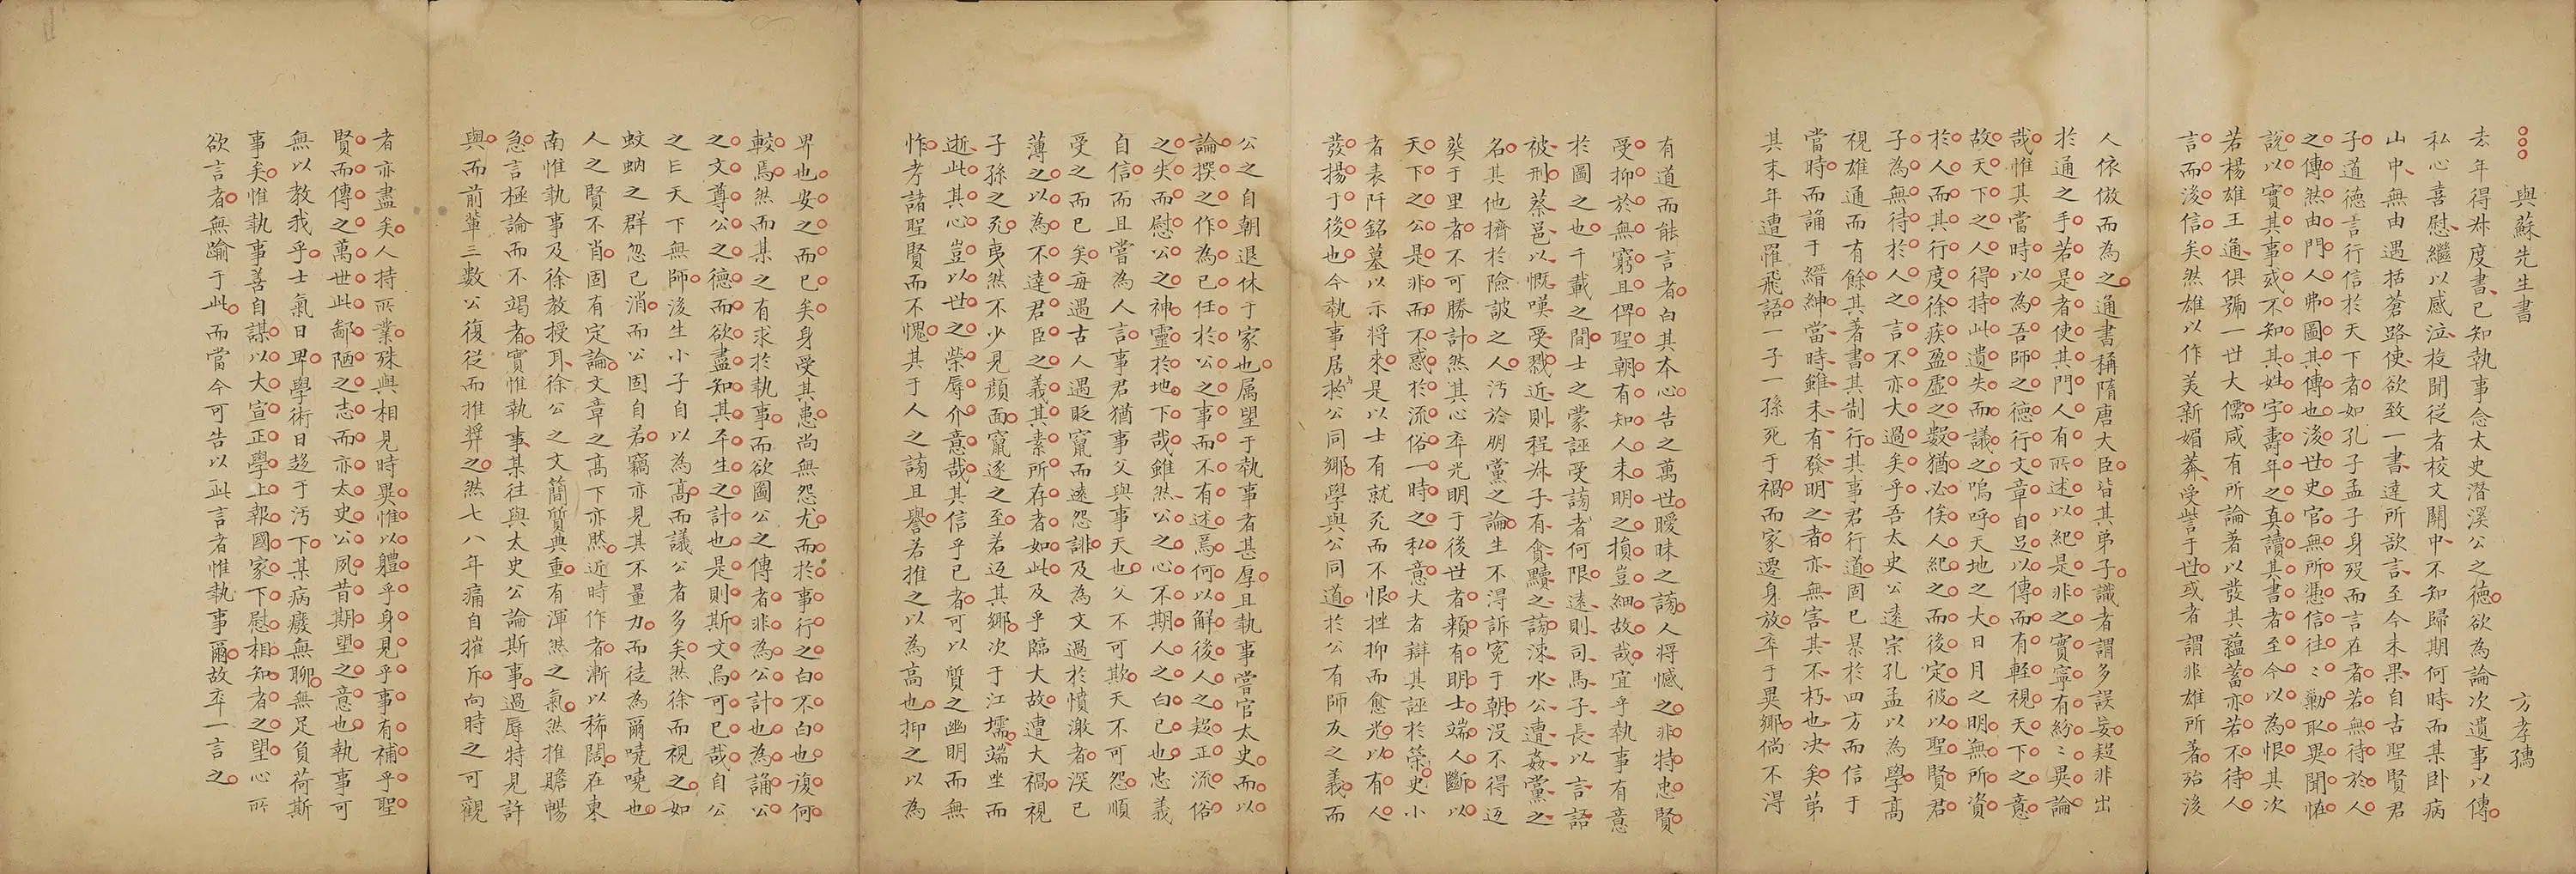 與蘇先生書 方孝孺
去年得叔度書已知執事念太史潛溪公之德欲為論次遺事以傳
私心喜慰繼以感泣後聞従者校文關中不知歸期何時而某臥病
山中無由遇括蒼路使欲致一書達所欲言至今未果自古聖賢君
子道德言行信於天下者如孔子孟子身歿而言在者若無待於人
之傳然由門人弗圖其傳也後世史官無所憑信往〻勦取異聞怪
說以實其事或不知其姓字壽年之真讀其書者至今以為恨其次
若楊雄王通俱號一世大儒咸有所論著以發其蘊蓄亦若不待人
言而後信矣然雄以作美新媚莽受訾于世或者謂非雄所著殆後
人依倣而為之通書稱隋唐大臣皆其弟子識者謂多誤妄疑非出
於通之手若是者使其門人有所述以紀是非之實寧有紛〻異論
哉惟其當時以為吾師之德行文章自足以傳而有輕視天下之意
故天下之人得持此遺失而議之嗚呼天地之大日月之明無所資
於人而其行度徐疾盈虛之數猶必俟人紀之而後定彼以聖賢君
子為無待於人之言不亦大過矣乎吾太史公遠宗孔孟以為學高
視雄通而有餘其著書其制行其事君行道固已暴於四方而信于
當時而誦于縉紳當時雖未有發明之者亦無害其不朽也決矣苐
其末年遭罹飛語一子一孫死于禍而家遷身放卒于異鄉倘不得
有道而能言者白其本心告之萬世曖昧之謗人將憾之非特忠賢
受抑於無窮且俾聖朝有知人未明之損豈細故哉宜乎執事有意
於圖之也千載之間士之蒙誣受謗者何限遠則司馬子長以言語
被刑蔡邕以慨嘆受戮近則程叔子有貪黷之謗涑水公遭姦黨之
名其他擠於險詖之人污於朋黨之論生不得訴冤于朝沒不得返
葵于里者不可勝計然其心卒光明于後世者賴有明士端人斷以
天下之公是非而不惑於流俗一時之私意大者辯其誣於榮史小
者表阡銘墓以示將來是以士有就死而不恨挫抑而愈光以有人
發揚于後也今執事居於公同鄉學與公同道於公有師友之義而
公之自朝退休于家也属望于執事者甚厚且執事嘗官太史而以
論撰之作為己任於公之事而不有述焉何以解後人之疑正流俗
之失而慰公之神靈於地下哉雖然公之心不期人之白已也忠義
自信而且嘗為人言事君猶事父與事天也父不可欺天不可怨順
受之而已矣每遇古人遇貶竄而遠怨誹及為文過於憤激者深已
薄之以為不達君臣之義其素所存者如此及乎臨大故遭大禍視
子孫之死夷然不少見顏面竄逐之至若返其鄉次于江壖端坐而
逝此其心豈以世之榮辱介意哉其信乎已者可以質之幽明而無
怍考諸聖賢而不愧其于人之謗且譽若推之以為高也抑之以為
卑也安之而已矣身受其患尚無怨尤而於事行之白不白也復何
較焉然而某之有求於執事而欲圖公之傳者非為公計也為誦公
之文尊公之德而欲盡知其平生之計也是則斯文烏可已哉自公
之亡天下無師後生小子自以為高而議公者多矣然徐而視之如
蚊蚋之群忽已消而公固自若竊亦見其不量力而徒為爾嘵嘵也
人之賢不肖固有定論文章之高下亦然近時作者漸以稀闊在東
南惟執事及徐教授耳徐公之文簡質典重有渾然之氣然推贍暢
急言極論而不竭者實惟執事某往與太史公論斯事過辱特見許
與而前輩三數公復從而推羿之然七八年痛自摧斥向時之可觀
者亦盡矣人持所業殊與相見時異惟以體乎身見乎事有補乎聖
賢而傳之萬世此鄙陋之志而亦太史公夙昔期望之意也執事可
無以教我乎士氣日卑學術日趍于污下某病癈無聊無足負荷斯
事矣惟執事善自謀以大宣正學上報國家下慰相知者之望心所
欲言者無踰于此而當今可告以此言者惟執事爾故卒一言之